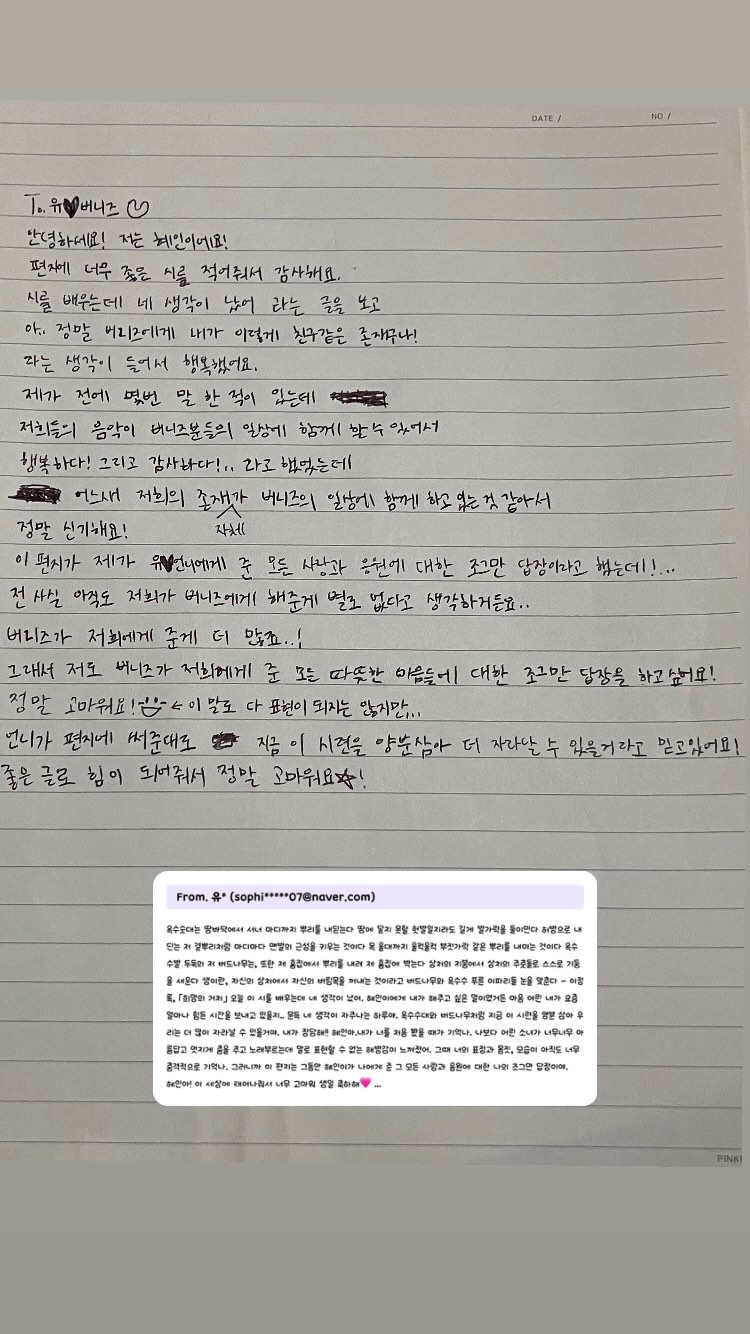 DATE /
NO /
To. 유♥버니즈
안녕하세요! 저는 혜인이에요!
편지에 너무 좋은 시를 적어줘서 감사해요.
시를 배우는데 네 생각이 났어 라는 글을 보고
아.. 정말 버니즈에게 내가 이렇게 친구같은 존재구나!
라는 생각이 들어서 행복했어요.
제가 전에 몇번 말 한 적이 있는데
저희들의 음악이 버니즈분들의 일상에 함께 할 수 있어서
행복하다! 그리고 감사하다!.. 라고 했었는데
어느새 저희의 존재가 버니즈의 일상에 함께 하고 있는 것 같아서
자체
정말 신기해요!
이 편지가 제가 유♥언니에게 준 모든 사랑과 응원에 대한 조그만 답장이라고 했는데!...
전 사실 아직도 저희가 버니즈에게 해준게 별로 없다고 생각하거든요..
버니즈가 저희에게 준게 더 많죠..!
그래서 저도 버니즈가 저희에게 준 모든 따뜻한 마음들에 대한 조그만 답장을 하고싶어요!
정말 고마워요! ← 이 말로 다 표현이 되지는 않지만...
언니가 편지에 써준대로 지금 이 시련을 양분삼아 더 자라날 수 있을거라고 믿고있어요!
좋은 글로 힘이 되어줘서 정말 고마워요☆!
From. 유* (sophi*****07@naver.com)
옥수숫대는 땅바닥에서 서너 마디까지 뿌리를 내딛는다 땅에 닿지 못할 헛발일지라도 길게 발가락을 들이민다 허방으로 내
딛는 저 곁뿌리처럼 마디마다 맨발의 근성을 키우는 것이다 목 울대까지 울컥울컥 부젓가락 같은 뿌리를 내미는 것이다 옥수
수밭 두둑의 저 버드나무는, 또한 제 흠집에서 뿌리를 내려 제 흠집에 박는다 상처의 지붕에서 상처의 주춧돌로 스스로 기둥
을 세운다 생이란, 자신의 상처에서 자신의 버팀목을 꺼내는 것이라고 버드나무와 옥수수 푸른 이파리들 눈을 맞춘다 - 이정
록, 「희망의 거처」 오늘 이 시를 배우는데 네 생각이 났어. 혜인이에게 내가 해주고 싶은 말이었거든 마음 여린 내가 요즘
얼마나 힘든 시간을 보내고 있을지.. 문득 네 생각이 자주나는 하루야. 옥수수대와 버드나무처럼 지금 이 시련을 양분 삼아 우
리는 더 많이 자라날 수 있을거야. 내가 장담해!! 혜인아.내가 너를 처음 봤을 때가 기억나. 나보다 어린 소녀가 너무너무 아
름답고 멋지게 춤을 추고 노래부르는데 말로 표현할 수 없는 해방감이 느껴졌어. 그때 너의 표정과 몸짓, 모습이 아직도 너무
충격적으로 기억나. 그러니까 이 편지는 그동안 혜인이가 나에게 준 그 모든 사랑과 응원에 대한 나의 조그만 답장이야.
혜인아! 이 세상에 태어나줘서 너무 고마워 생일 축하해🩷 ...